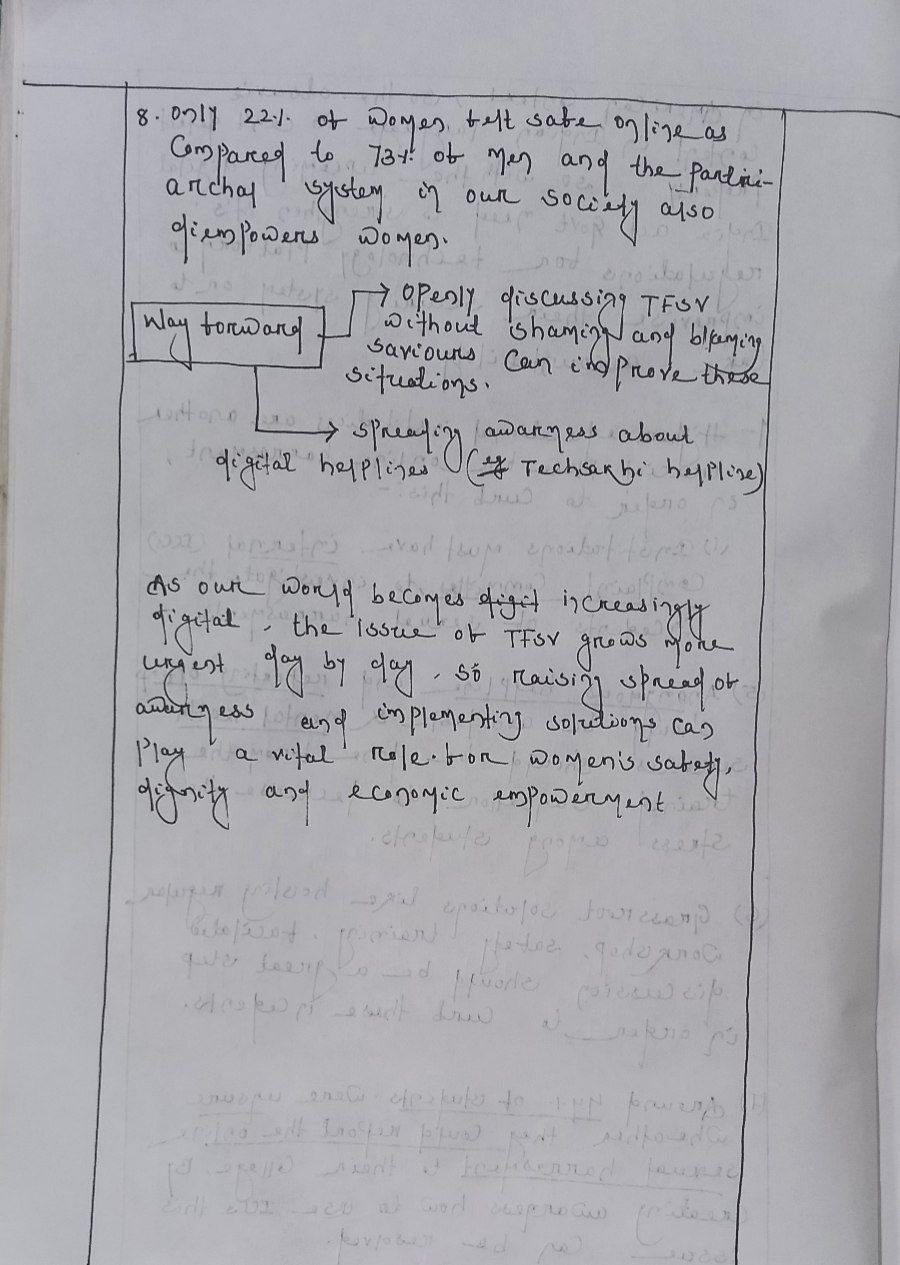 8. Only 22% of women felt safe online as
Compared to 73% of men and the Partri-
archal system in our society also
diempowers women.
Way forward
→ Openly discussing TFSV
without shaming and blaming
saviours can improve these
situations.
→ Spreading awarness about
digital helplines (eg Techsakhi helpline)
As our world becomes digit increasingly
digital, the issue of TFSV grows more
urgent day by day, so raising spread of
awarness and implementing solutions can
Play a vital role for women's safety,
dignity and economic empowerment